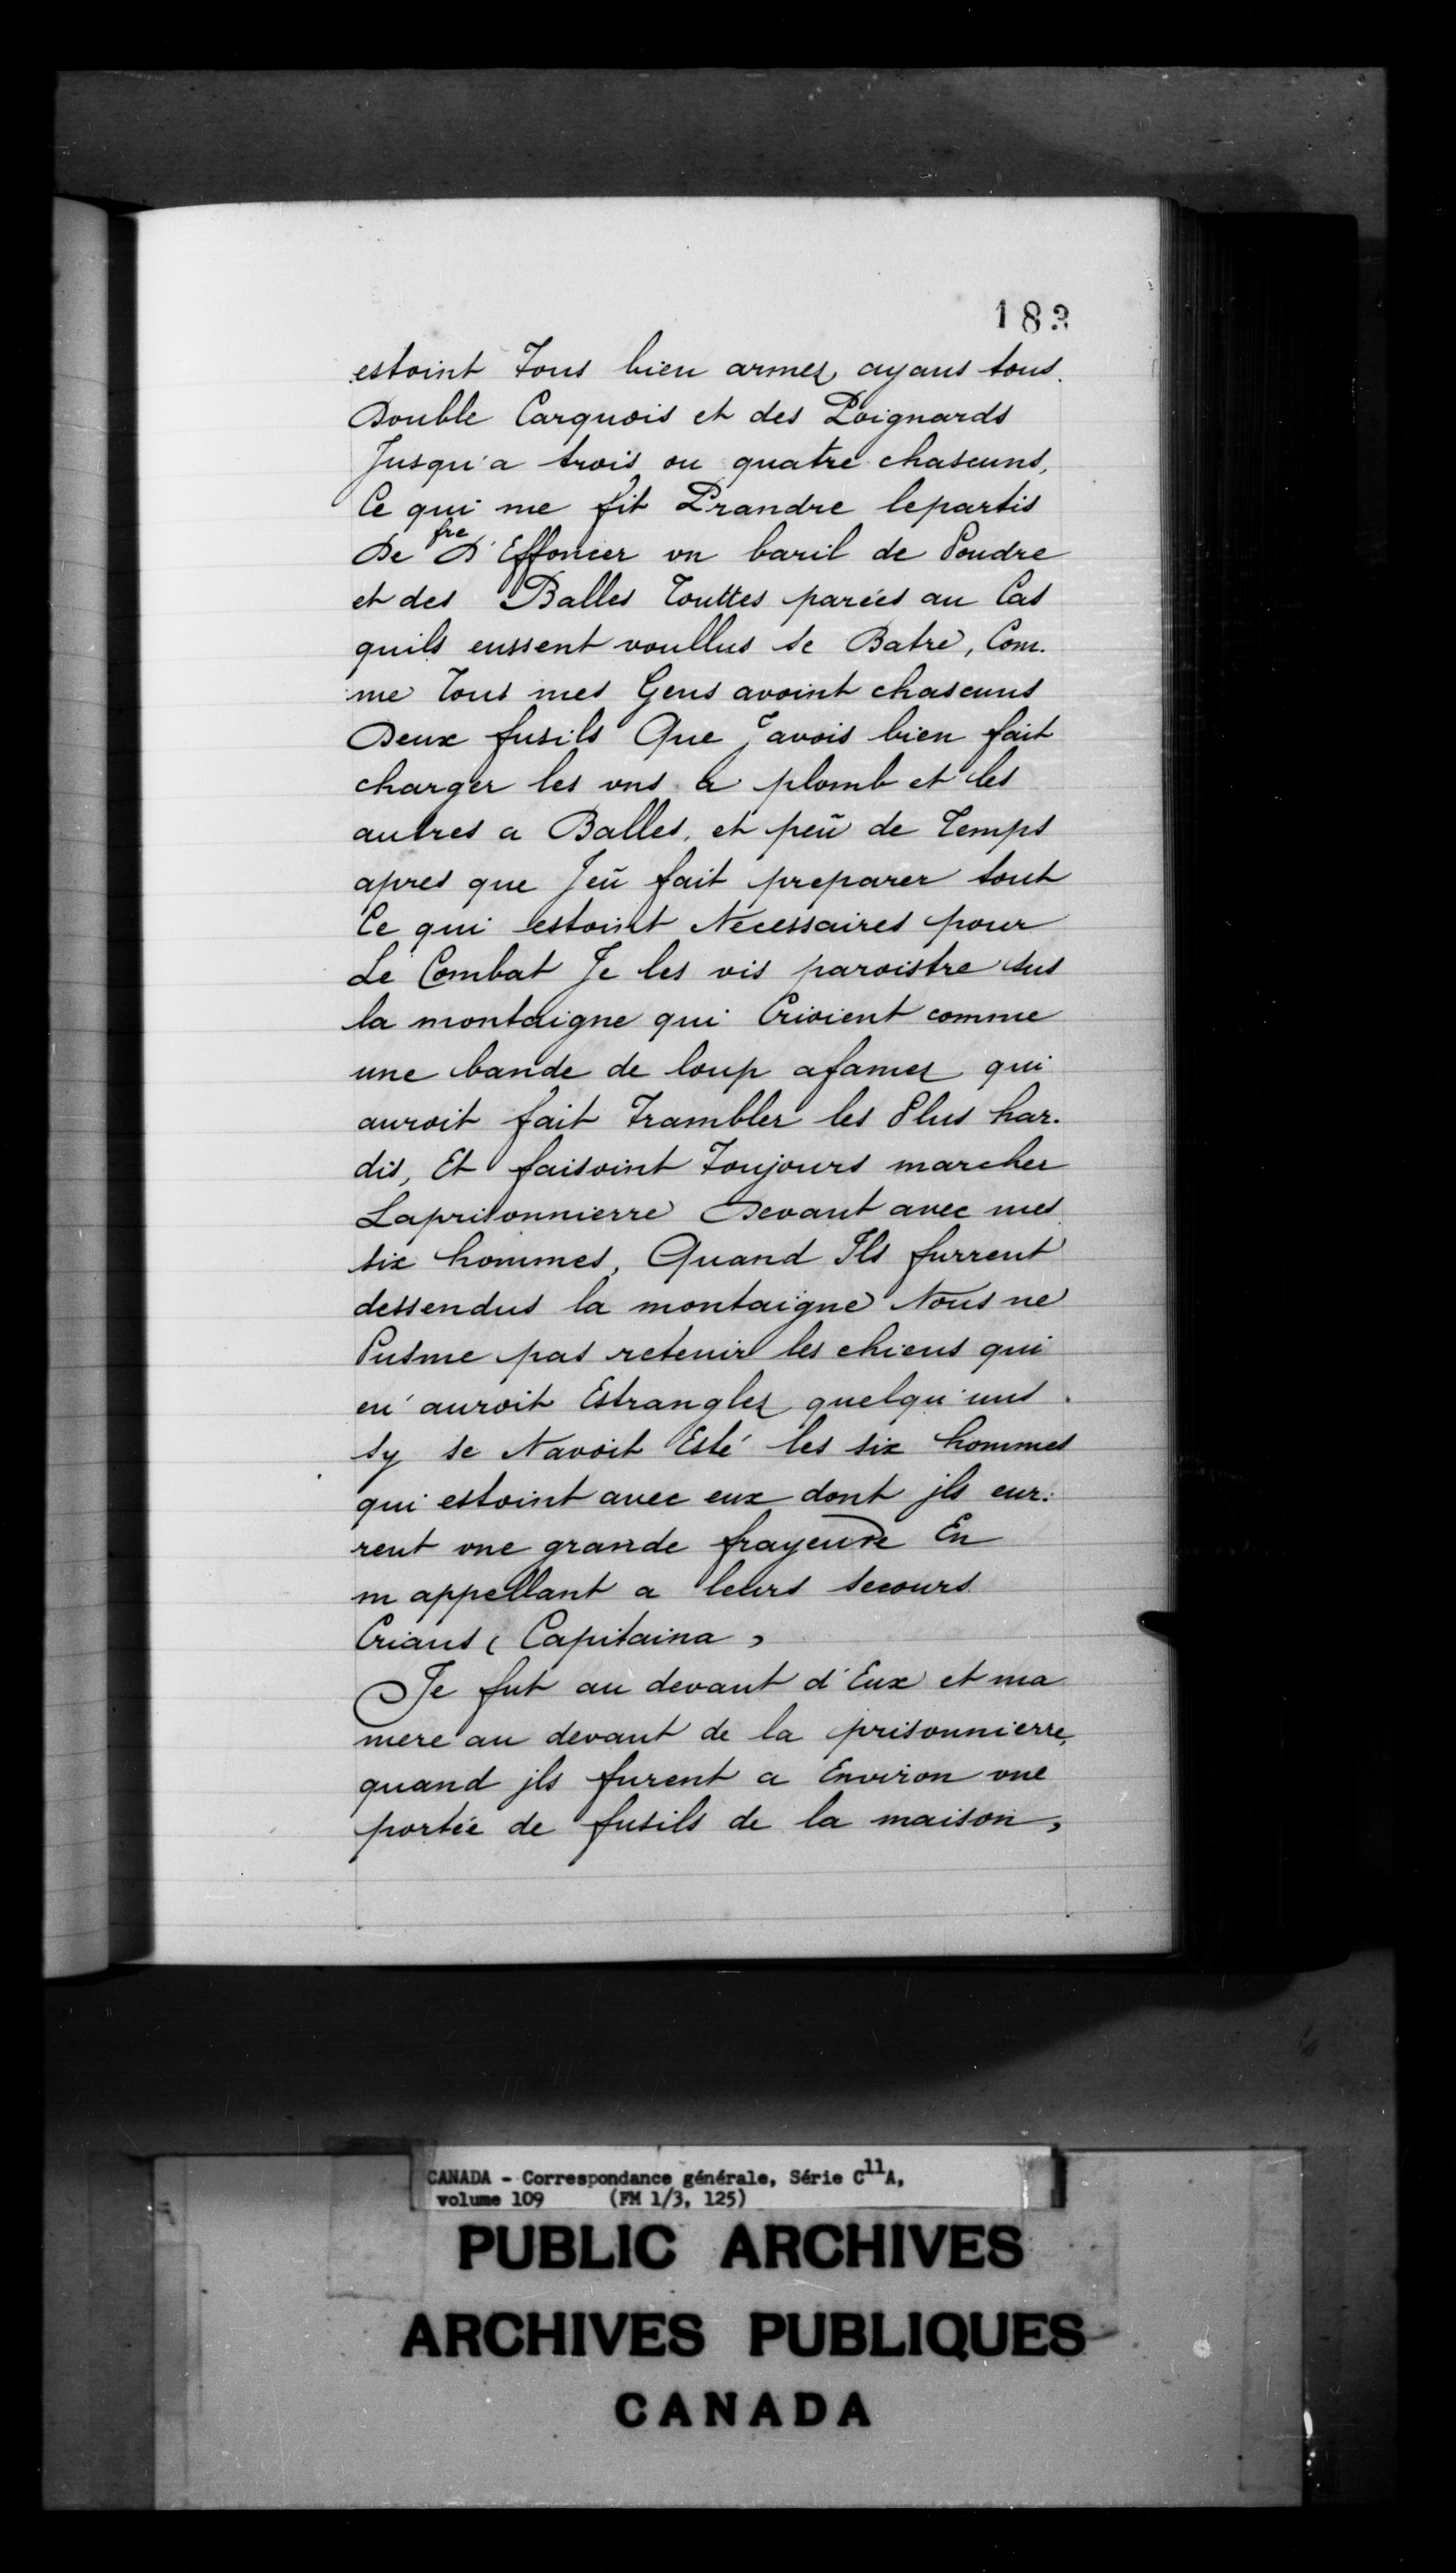 183
estoint Tous bien armez, ayans tous
Double Carquois et des Poignards
Jusqu'a trois ou quatre chascuns,
Ce qui me fit Prandre lepartis
De fre D'Effoncer vn baril de Poudre
et des Balles Touttes parées au Cas
quils eussent voullus se Batre, Com-
me Tous mes Gens avoint chascuns
Deux fusils Que Javois bien fait
charger les vns a plomb et les
autres a Balles, et peü de Temps
apres que Jeü fait preparer tout
Ce qui estoint Necessaires pour
Le Combat Je les vis paroistre sus
la montaigne qui Crioient comme
une bande de loup afamez qui
auroit fait Trambler les Plus har-
dis, Et faisoint Toujours marcher
Laprisonnierre Devant avec mes
six hommes, Quand Ils furrent
dessendus la montaigne Nous ne
Pusme pas retenir les chiens qui
en auroit Estranglez quelqu'uns
sy se Navoit Esté les six hommes
qui estoint avec eux dont jls eur-
rent vne grande frayeure En
m appellant a leurs secours
Crians ( Capitaina ,
Je fut au devant d'Eux et ma
mere au devant de la prisonnierre,
quand jls furent a Environ vne
portée de fusils de la maison,
CANADA - Correspondance générale, Série C11A,
volume 109 (FM 1/3, 125)
PUBLIC ARCHIVES
ARCHIVES PUBLIQUES
CANADA